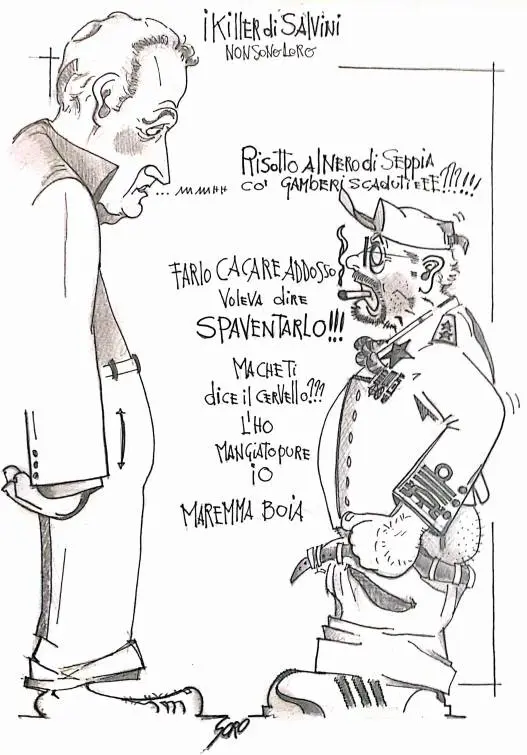 i KillER di SAlViNi
NON SONO LORO
... MMMHH
RiSOTTO Al NERO di SEPPiA
CO' GAMBERi SCADUTi EEE???!!!
FARlO CAGARE ADDOSSO
VOlEVA diRE
SPAVENTARlO!!!
MA CHE Ti
diCE il CERVEllO???
L'HO
MANGiATO PURE
iO
MAREMMA BOiA
SORO